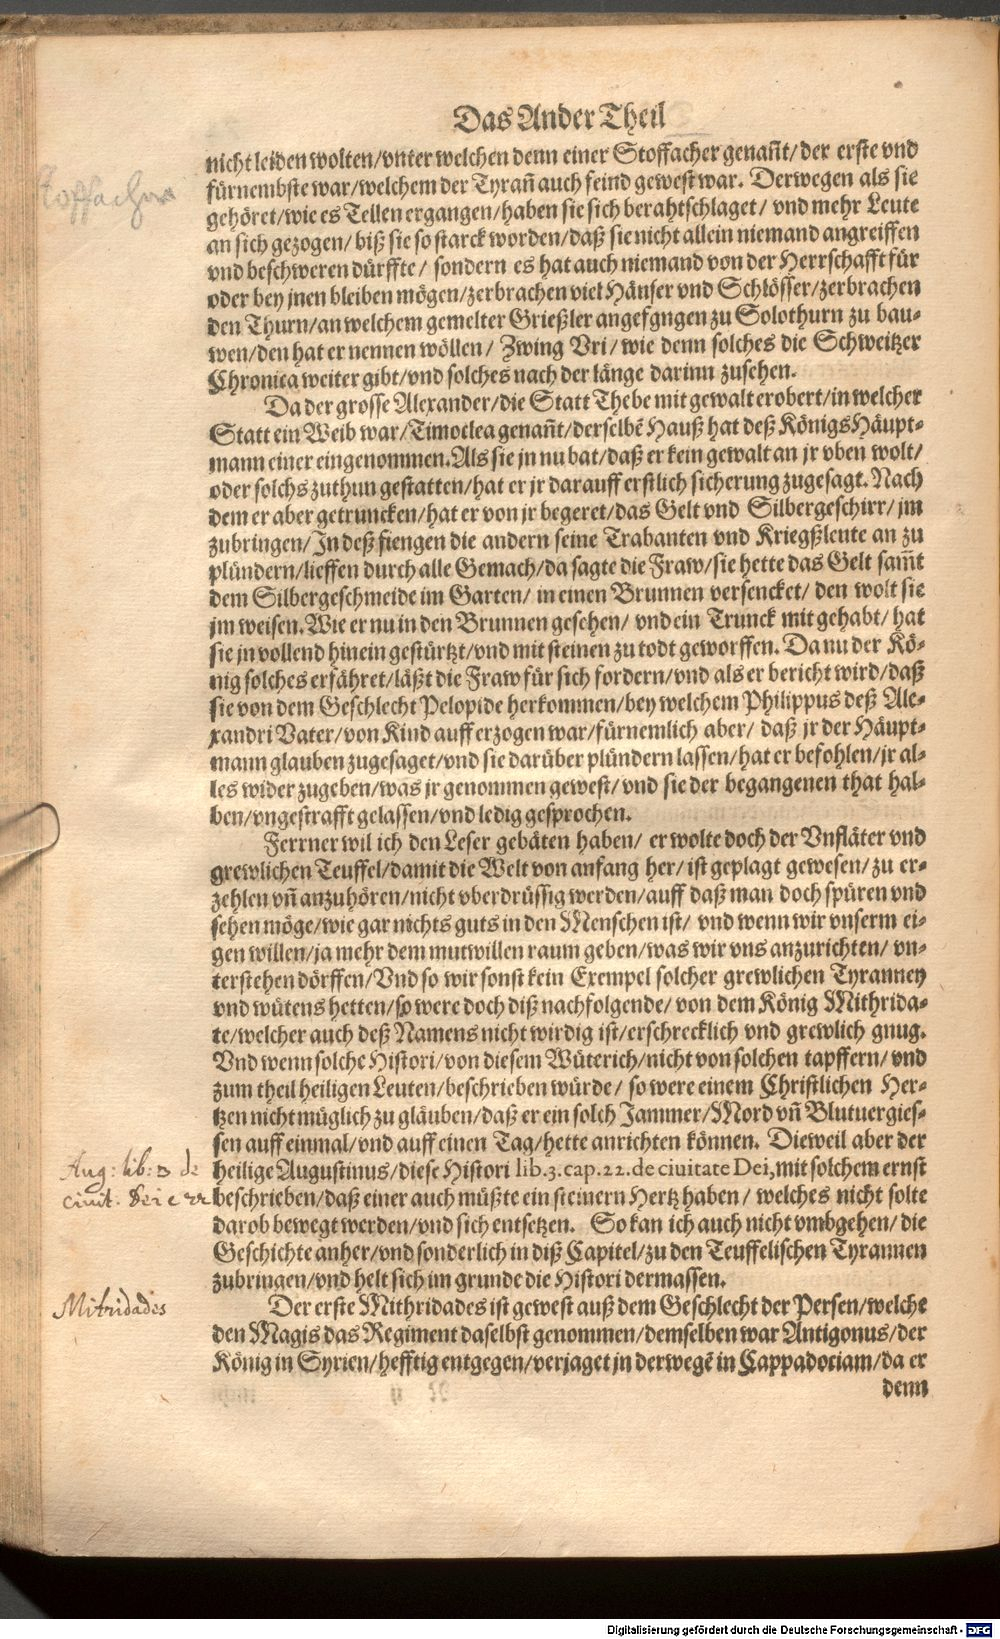 Das Ander Theil
nicht leiden wolten/vnter welchen denn einer Stoffacher genañt/der erste vnd
fürnembste war/welchem der Tyrañ auch feind gewest war. Derwegen als sie
Stoffacher
gehöret/wie es Tellen ergangen/haben sie sich berahtschlaget/ vnd mehr Leute
an sich gezogen/ biß sie so starck worden/daß sie nicht allein niemand angreiffen
vnd beschweren dürffte/ sondern es hat auch niemand von der Herrschafft für
oder bey jnen bleiben mögen/zerbrachen viel Häuser vnd Schlösser/zerbrachen
den Thurn/an welchem gemelter Grießler angefgngen zu Solothurn zu bau-
wen/den hat er nennen wöllen/ Zwing Vri/ wie denn solches die Schweitzer
Chronica weiter gibt/vnd solches nach der länge darinn zusehen.
Da der grosse Alexander/die Statt Thebe mit gewalt erobert/in welcher
Statt ein Weib war/Timoclea genañt/derselbẽ Hauß hat deß Königs Häupt-
mann einer eingenommen. Als sie jn nu bat/daß er kein gewalt an jr vben wolt/
oder solchs zuthun gestatten/hat er jr darauff erstlich sicherung zugesagt. Nach
dem er aber getruncken/hat er von jr begeret/das Gelt vnd Silbergeschirr/jm
zubringen/In deß fiengen die andern seine Trabanten vnd Kriegßleute an zu
plündern/lieffen durch alle Gemach/da sagte die Fraw/sie hette das Gelt sam̃t
dem Silbergeschmeide im Garten/ in einen Brunnen versencket/ den wolt sie
jm weisen. Wie er nu in den Brunnen gesehen/ vnd ein Trunck mit gehabt/ hat
sie jn vollend hinein gestürtzt/vnd mit steinen zu todt geworffen. Da nu der Kö-
nig solches erfähret/läßt die Fraw für sich fordern/vnd als er bericht wird/daß
sie von dem Geschlecht Pelopide herkommen/bey welchem Philippus deß Ale-
xandri Vater/von Kind auff erzogen war/fürnemlich aber/ daß jr der Häupt-
mann glauben zugesaget/vnd sie darüber plündern lassen/hat er befohlen/jr al-
les wider zugeben/was jr genommen gewest/ vnd sie der begangenen that hal-
ben/vngestrafft gelassen/vnd ledig gesprochen.
Ferrner wil ich den Leser gebäten haben/ er wolte doch der Vnfläter vnd
grewlichen Teuffel/damit die Welt von anfang her/ ist geplagt gewesen/zu er-
zehlen vñ anzuhören/nicht vberdrüssig werden/auff daß man doch spüren vnd
sehen möge/wie gar nichts guts in den Menschen ist/ vnd wenn wir vnserm ei-
gen willen/ja mehr dem mutwillen raum geben/was wir vns anzurichten/ vn-
terstehen dörffen/Vnd so wir sonst kein Exempel solcher grewlichen Tyranney
vnd wütens hetten/so were doch diß nachfolgende/ von dem König Mithrida-
te/welcher auch deß Namens nicht wirdig ist/erschrecklich vnd grewlich gnug.
Vnd wenn solche Histori/von diesem Wüterich/nicht von solchen tapffern/ vnd
zum theil heiligen Leuten/beschrieben würde/ so were einem Christlichen Her-
tzen nicht müglich zu gläuben/daß er ein solch Jammer/Mord vñ Blutuergies-
sen auff einmal/vnd auff einen Tag/hette anrichten können. Dieweil aber der
Aug: lib: 3 de
civit. Dei c 22
heilige Augustinus/diese Histori lib.3.cap.22.de ciuitate Dei, mit solchem ernst
beschrieben/daß einer auch müßte ein steinern Hertz haben/ welches nicht solte
darob bewegt werden/vnd sich entsetzen. So kan ich auch nicht vmbgehen/ die
Geschichte anher/vnd sonderlich in diß Capitel/zu den Teuffelischen Tyrannen
zubringen/vnd helt sich im grunde die Histori dermassen.
Mitridades
Der erste Mithridades ist gewest auß dem Geschlecht der Persen/welche
den Magis das Regiment daselbst genommen/demselben war Antigonus/der
König in Syrien/hefftig entgegen/verjaget jn derwegẽ in Cappadociam/da er
denn
Digitalisierung gefördert durch die Deutsche Forschungsgemeinschaft - DFG